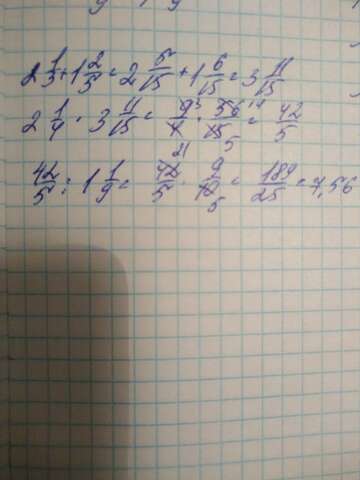 2 1/3 + 1 2/5 = 2 5/15 + 1 6/15 = 3 11/15
2 1/4 · 3 11/15 = 9/4 · 56/15 = 42/5
42/5 : 1 1/9 = 42/5 · 9/10 = 189/25 = 7,56